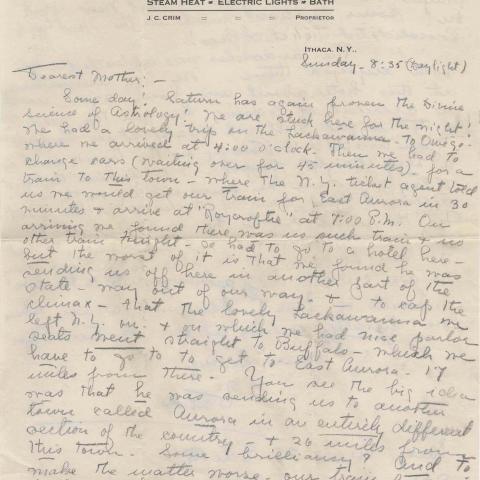 STEAM HEAT - ELECTRIC LIGHTS - BATH
J. C. CRIM PROPRIETOR
ITHACA, N.Y..
Sunday - 8:35 (Daylight)
Dearest Mother: -
Some day! Saturn has again proven the Divine
science of Astrology! We are stuck here for the night!
We had a lovely trip on the Lackawanna - to Owego -
where we arrived at 4:00 o'clock. Then we had to
change cars (waiting over for 45 minutes) - for a
train to This town - where The N.Y. ticket agent told
us we would get our train for East Aurora in 30
minutes & arrive at "Roycrofters" at 7:00 P.M. On
arriving we found there was no such train & no
other train tonight - so had to go to a hotel here -
but the worst of it is that we found he was
sending us off here in another part of the
state - way out of our way. & - to cap the
climax - that the lovely Lackawanna we
left N.Y. on - & on which we had nice parlor
seats went straight to Buffalo - which we
have to go to to get to East Aurora - 17
miles from there. You see the big idea
was that he was sending us to another
town called Aurora in an entirely different
section of the country - & 26 miles from
this town. Some brilliancy? And to
make the matter worse - our